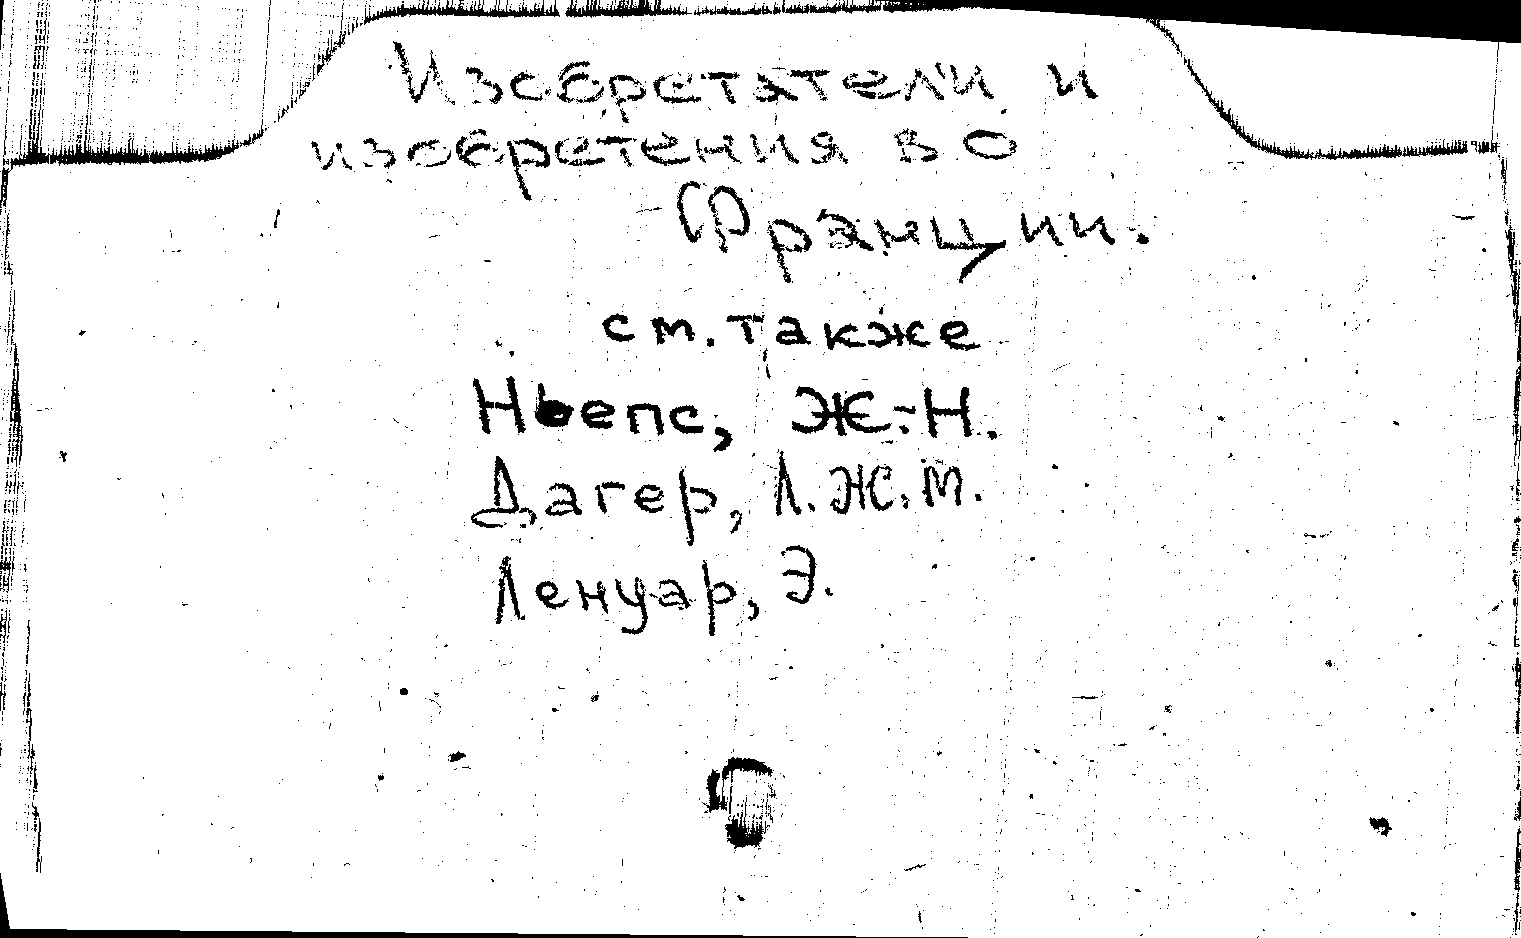 Изобретатели и
изобретения во
Франции.
см. также
Ньепс, Ж.-Н.
Дагер, Л.Ж.М.
Ленуар, Э.